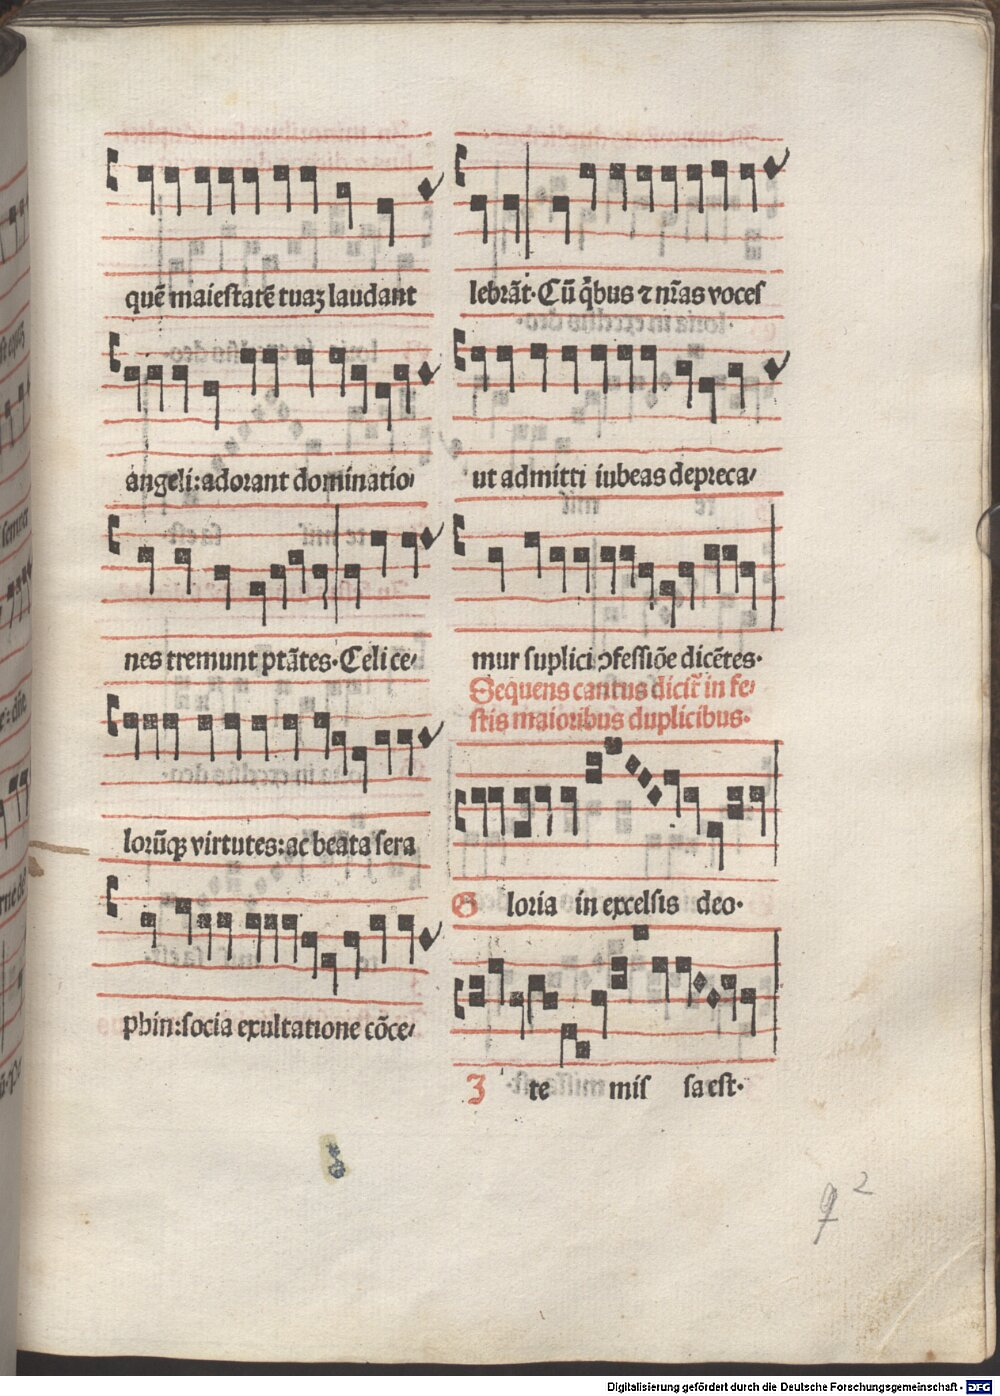 quē maiestatē tuaꝫ laudant
angeli: adorant dominatio/
nes tremunt ptātes. Celi ce/
lorūqꝫ virtutes: ac beata sera
phin: socia exultatione cōce/
lebrāt. Cū qͥbus ⁊ nr̄as voces
ut admitti iubeas depreca/
mur suplici ꝯfessiōe dicētes.
Sequens cantus dicit̄ in fe/
stis maioribus duplicibus.
Gloria in excelsis deo.
Ite mis sa est.
q 2
Digitalisierung gefördert durch die Deutsche Forschungsgemeinschaft - DFG